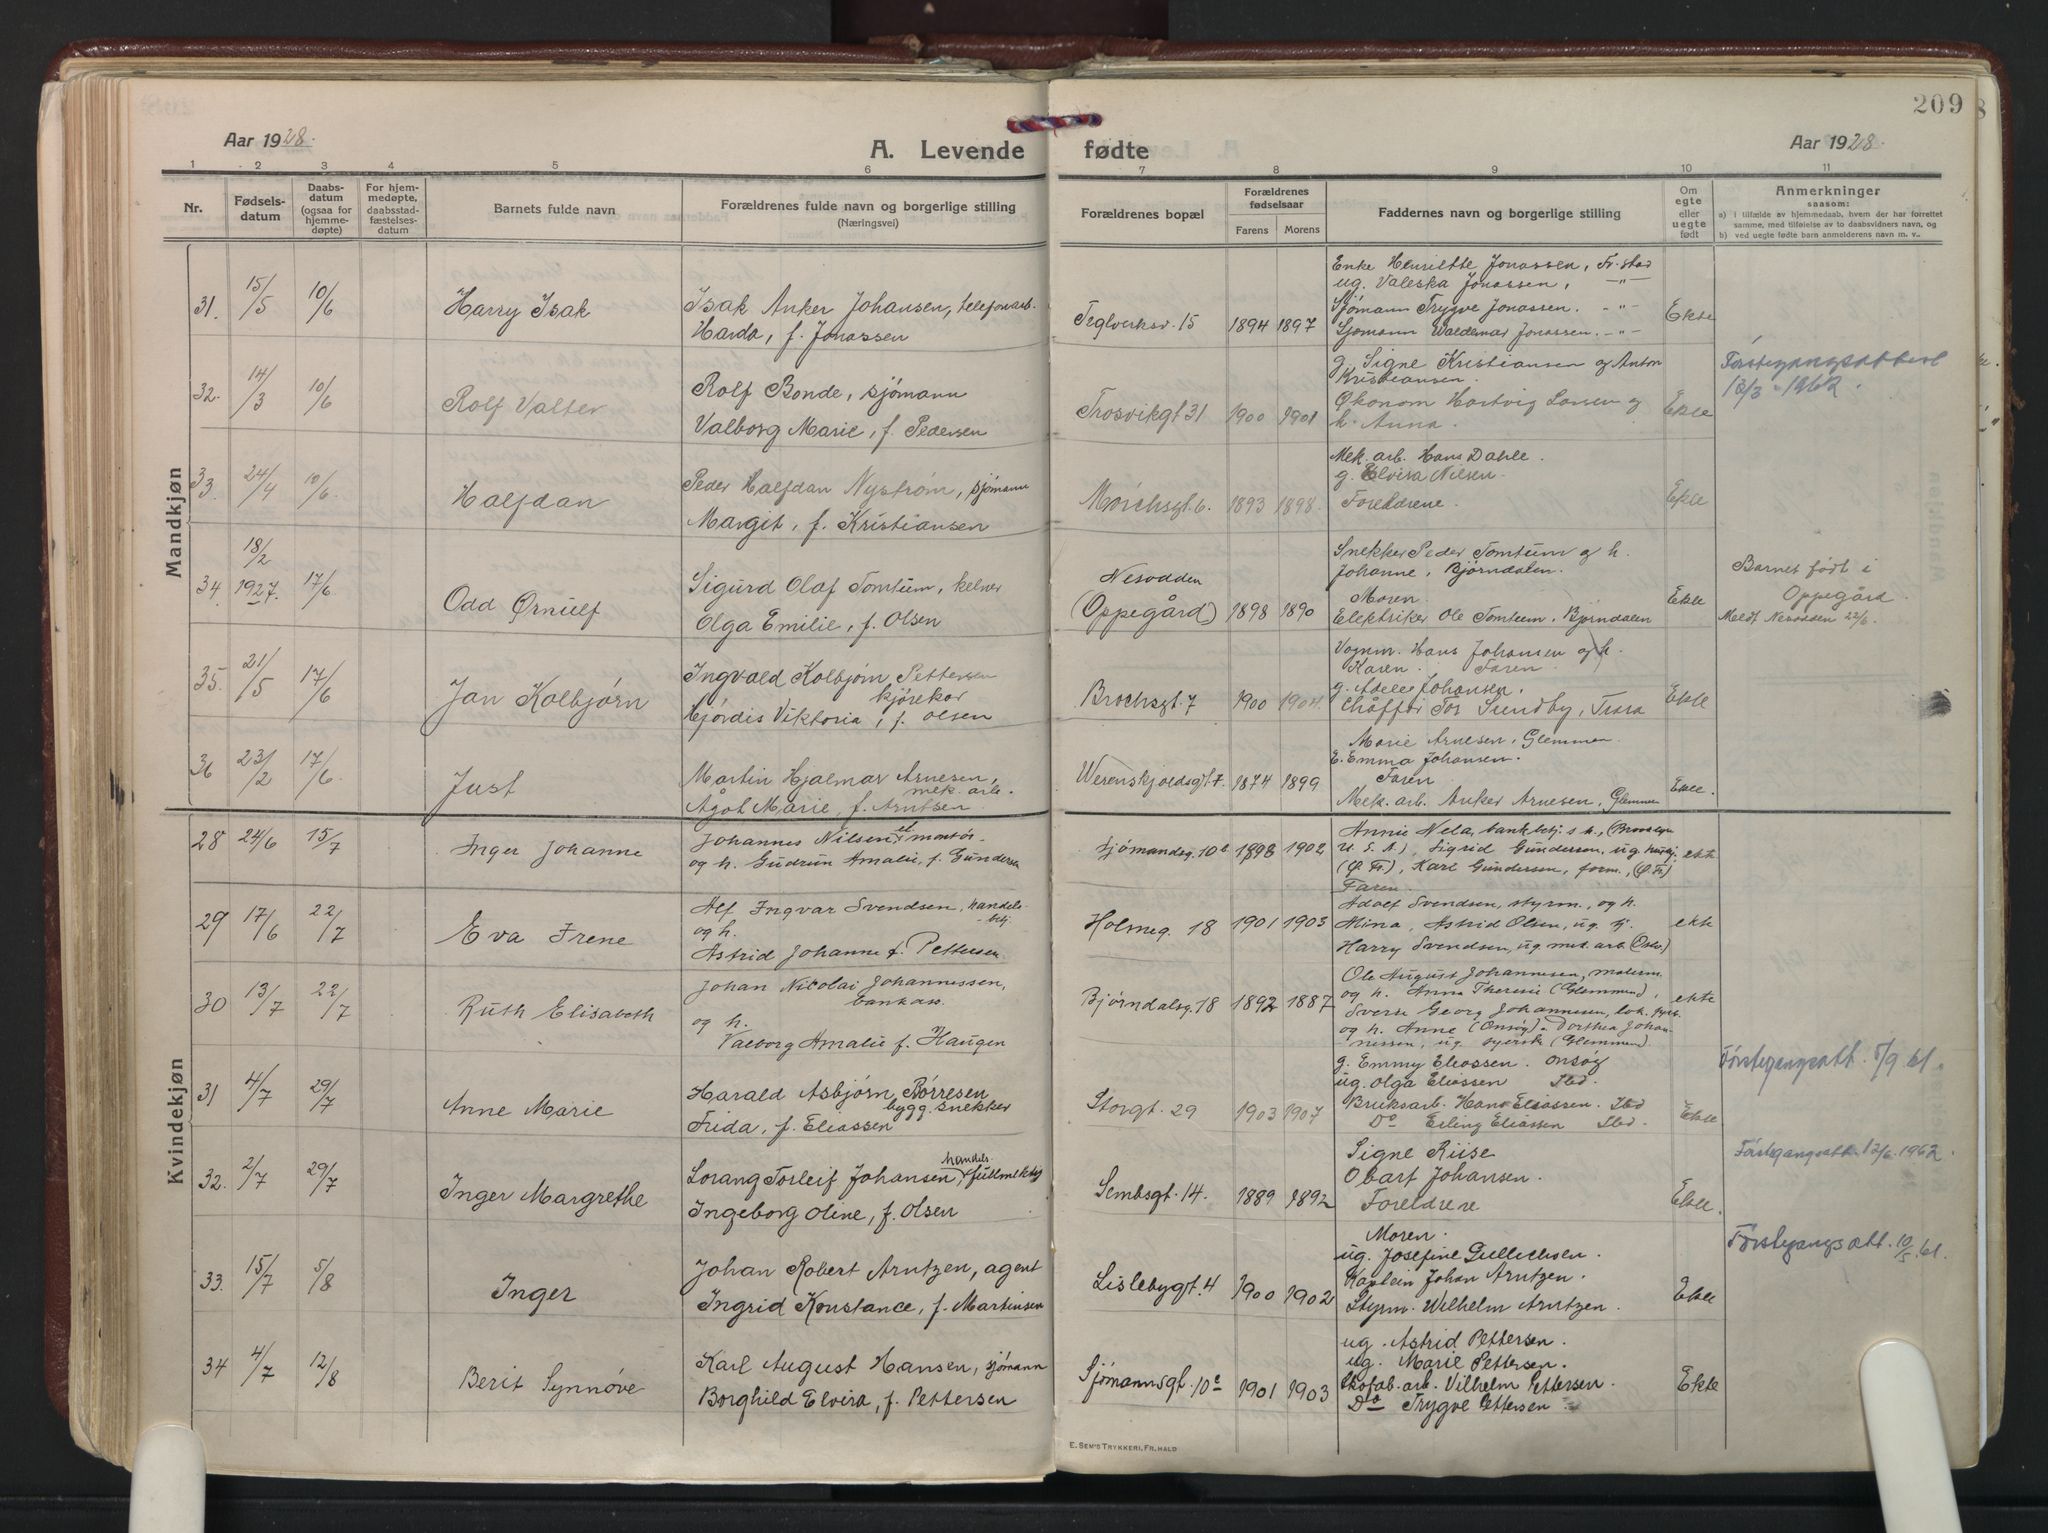 209
8
Aar 1928.
A. Levende fødte
Aar 1928.
1 2 3 4 5 6 7 8 9 10 11
Nr.
Fødsels-
datum
Daabs-
datum
(ogsaa for
hjemme-
døpte)
For hjem-
medøpte,
daabsstad-
fæstelses-
datum
Barnets fulde navn
Forældrenes fulde navn og borgerlige stilling
(Næringsvei)
Forældrenes bopæl
Forældrenes
fødselsaar
Farens Morens
Faddernes navn og borgerlige stilling
Om
egte
eller
uegte
født
Anmerkninger
saasom:
a) i tilfælde av hjemmedaab, hvem der har forrettet
samme, med tilføielse av to daabsvidners navn, og
b) ved uegte fødte barn anmelderens navn m. v..
Mandkjøn
31. 15/5 10/6 Harry Isak
Isak Anker Johansen, telefonarb.
Harda, f. Jonassen
Teglverksv. 15 1894 1897
Enke Henriette Jonassen, Fr.stad
ug. Valeska Jonassen, -"-
Sjømann Trygve Jonassen. -"-
Sjømann Valdemar Jonassen. -"-
Ekte
32. 14/3 10/6 Rolf Valter
Rolf Bonde, sjømann
Valborg Marie, f. Pedersen
Trosvikgt 31 1900 1901
g. Signe Kristiansen og Anton
Kristiansen.
Økonom Hartvig Larsen og
h. Anna.
Ekte
Førstegangsattest
13/3 - 1962.
33. 24/4 10/6. Halfdan
Peder Halfdan Nystrøm, sjømann
Margit, f. Kristiansen
Mørchsgt. 6. 1893 1898.
Mek. arb. Hans Dahle.
g. Elvira Nilsen.
Foreldrene.
Ekte
34. 18/2 1927. 17/6. Odd Ørnulf
Sigurd Olaf Tomtum, kelner
Olga Emilie, f. Olsen
Nesodden
(Oppegård) 1898 1890
Snekker Peder Tomtum og h.
Johanne, Bjørndalen.
Moren.
Elektriker Ole Tomtum, Bjørndalen
Ekte
Barnet født i
Oppegård.
Meldt Nesodden 22/6.
35. 21/5 17/6 Jan Kolbjørn
Ingvald Kolbjørn Pettersen
kjørekar
Hjørdis Viktoria, f. Olsen
Brochsgt. 7 1900 1904.
Vognm. Hans Johansen og h.
Karen. Faren.
g. Adele Johansen.
Chåffør Tor Sundby, Tara
Ekte
36 23/2 17/6. Just
Martin Hjalmar Arnesen,
mek. arb.
Ågot Marie, f. Arntsen.
Werenskjoldsgt. 7. 1874 1899
Marie Arnesen, Glemmen.
E. Emma Johansen.
Faren
Mek. arb. Anker Arnesen, Glemmen
Ekte.
Kvindekjøn
28 24/6 15/7 Inger Johanne
Johannes Nilsen, el. montør
og h. Gudrun Amalie, f. Gundersen
Sjømandsg. 10 1898 1902
Annie Nela, bankbetj.s h., (Brooklyn
U. S. A.), Sigrid Gundersen, ug. husbj.
(Ø. Fr.), Karl Gundersen, form., (Ø. Fr.)
Faren.
ekte
29 17/6 22/7 Eva Irene
Alf Ingvar Svendsen, handels-
betj.
og h.
Astrid Johanne f. Pettersen.
Holmeg. 18 1901 1903
Adolf Svendsen, styrm., og h.
Mina, Astrid Olsen, ug. hj.
Harry Svendsen, ug. mek. arb. (Oslo.)
ekte
30 13/7 22/7 Ruth Elisabeth
Johan Nicolai Johannessen,
bankass.
og h.
Valborg Amalie f. Haugen
Bjørndalsg. 18 1892 1887
Ole August Johannesen, malerm.
og h. Anna Therese (Glemmen),
Sverre Georg Johannesen, lok. fyrb.
og h. Anne (Onsøy). Dorthea Johan-
nessen, ug. syerske (Glemmen)
ekte
31 4/7 29/7 Anne Marie
Harald Asbjørn Børresen
bygg.snekker
Frida, f. Eliassen
Storgt. 29 1903 1907
g. Emmy Eliassen. Onsøy
ug. Olga Eliassen Sted.
Bruksarb. Hans Eliassen. Sted
Do Erling Eliassen Sted.
Ekte
Førstegangsatt. 5/9. 61.
32. 2/7 29/7 Inger Margrethe
Lorang Torleif Johansen, handels-fullmektig
Ingeborg Oline, f. Olsen
Sembsgt. 14. 1889 1892
Signe Riise
Obart Johansen.
Foreldrene
Ekte.
Førstegangsatt. 12/6 1962.
33. 15/7 5/8 Inger
Johan Robert Arntzen, agent
Ingrid Konstance, f. Martinsen
Lislebygt. 4 1900 1902
Moren.
ug. Josefine Gullichsen.
Kaptein Johan Arntzen.
Styrm. Wilhelm Arntzen.
Ekte
Førstegangsatt. 10/5 61.
34 4/7 12/8 Berit Synnøve
Karl August Hansen, sjømann
Borghild Elvira, f. Pettersen
Sjømannsgt. 10c 1901 1903
ug. Astrid Pettersen.
ug. Marie Pettersen.
Skofab. arb. Vilhelm Pettersen.
Do Trygve Pettersen.
Ekte
E. SEM'S TRYKKERI, FR.HALD